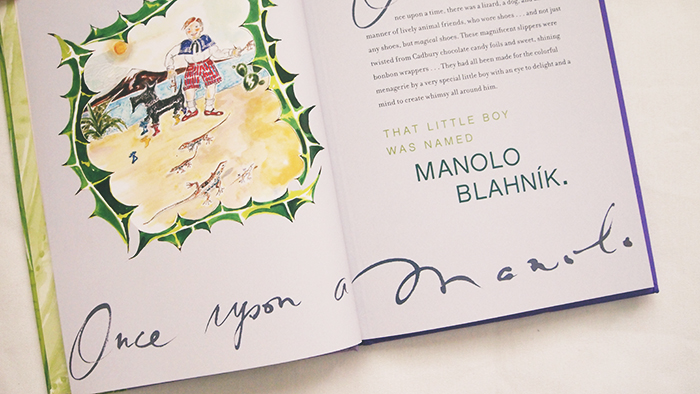 once upon a time, there was a lizard, a dog, and
manner of lively animal friends, who wore shoes . . . and not just
any shoes, but magical shoes. These magnificent slippers were
twisted from Cadbury chocolate candy foils and sweet, shining
bonbon wrappers . . . They had all been made for the colorful
menagerie by a very special little boy with an eye to delight and a
mind to create whimsy all around him.
THAT LITTLE BOY
WAS NAMED
MANOLO
BLAHNÍK.
Once upon a Manolo.